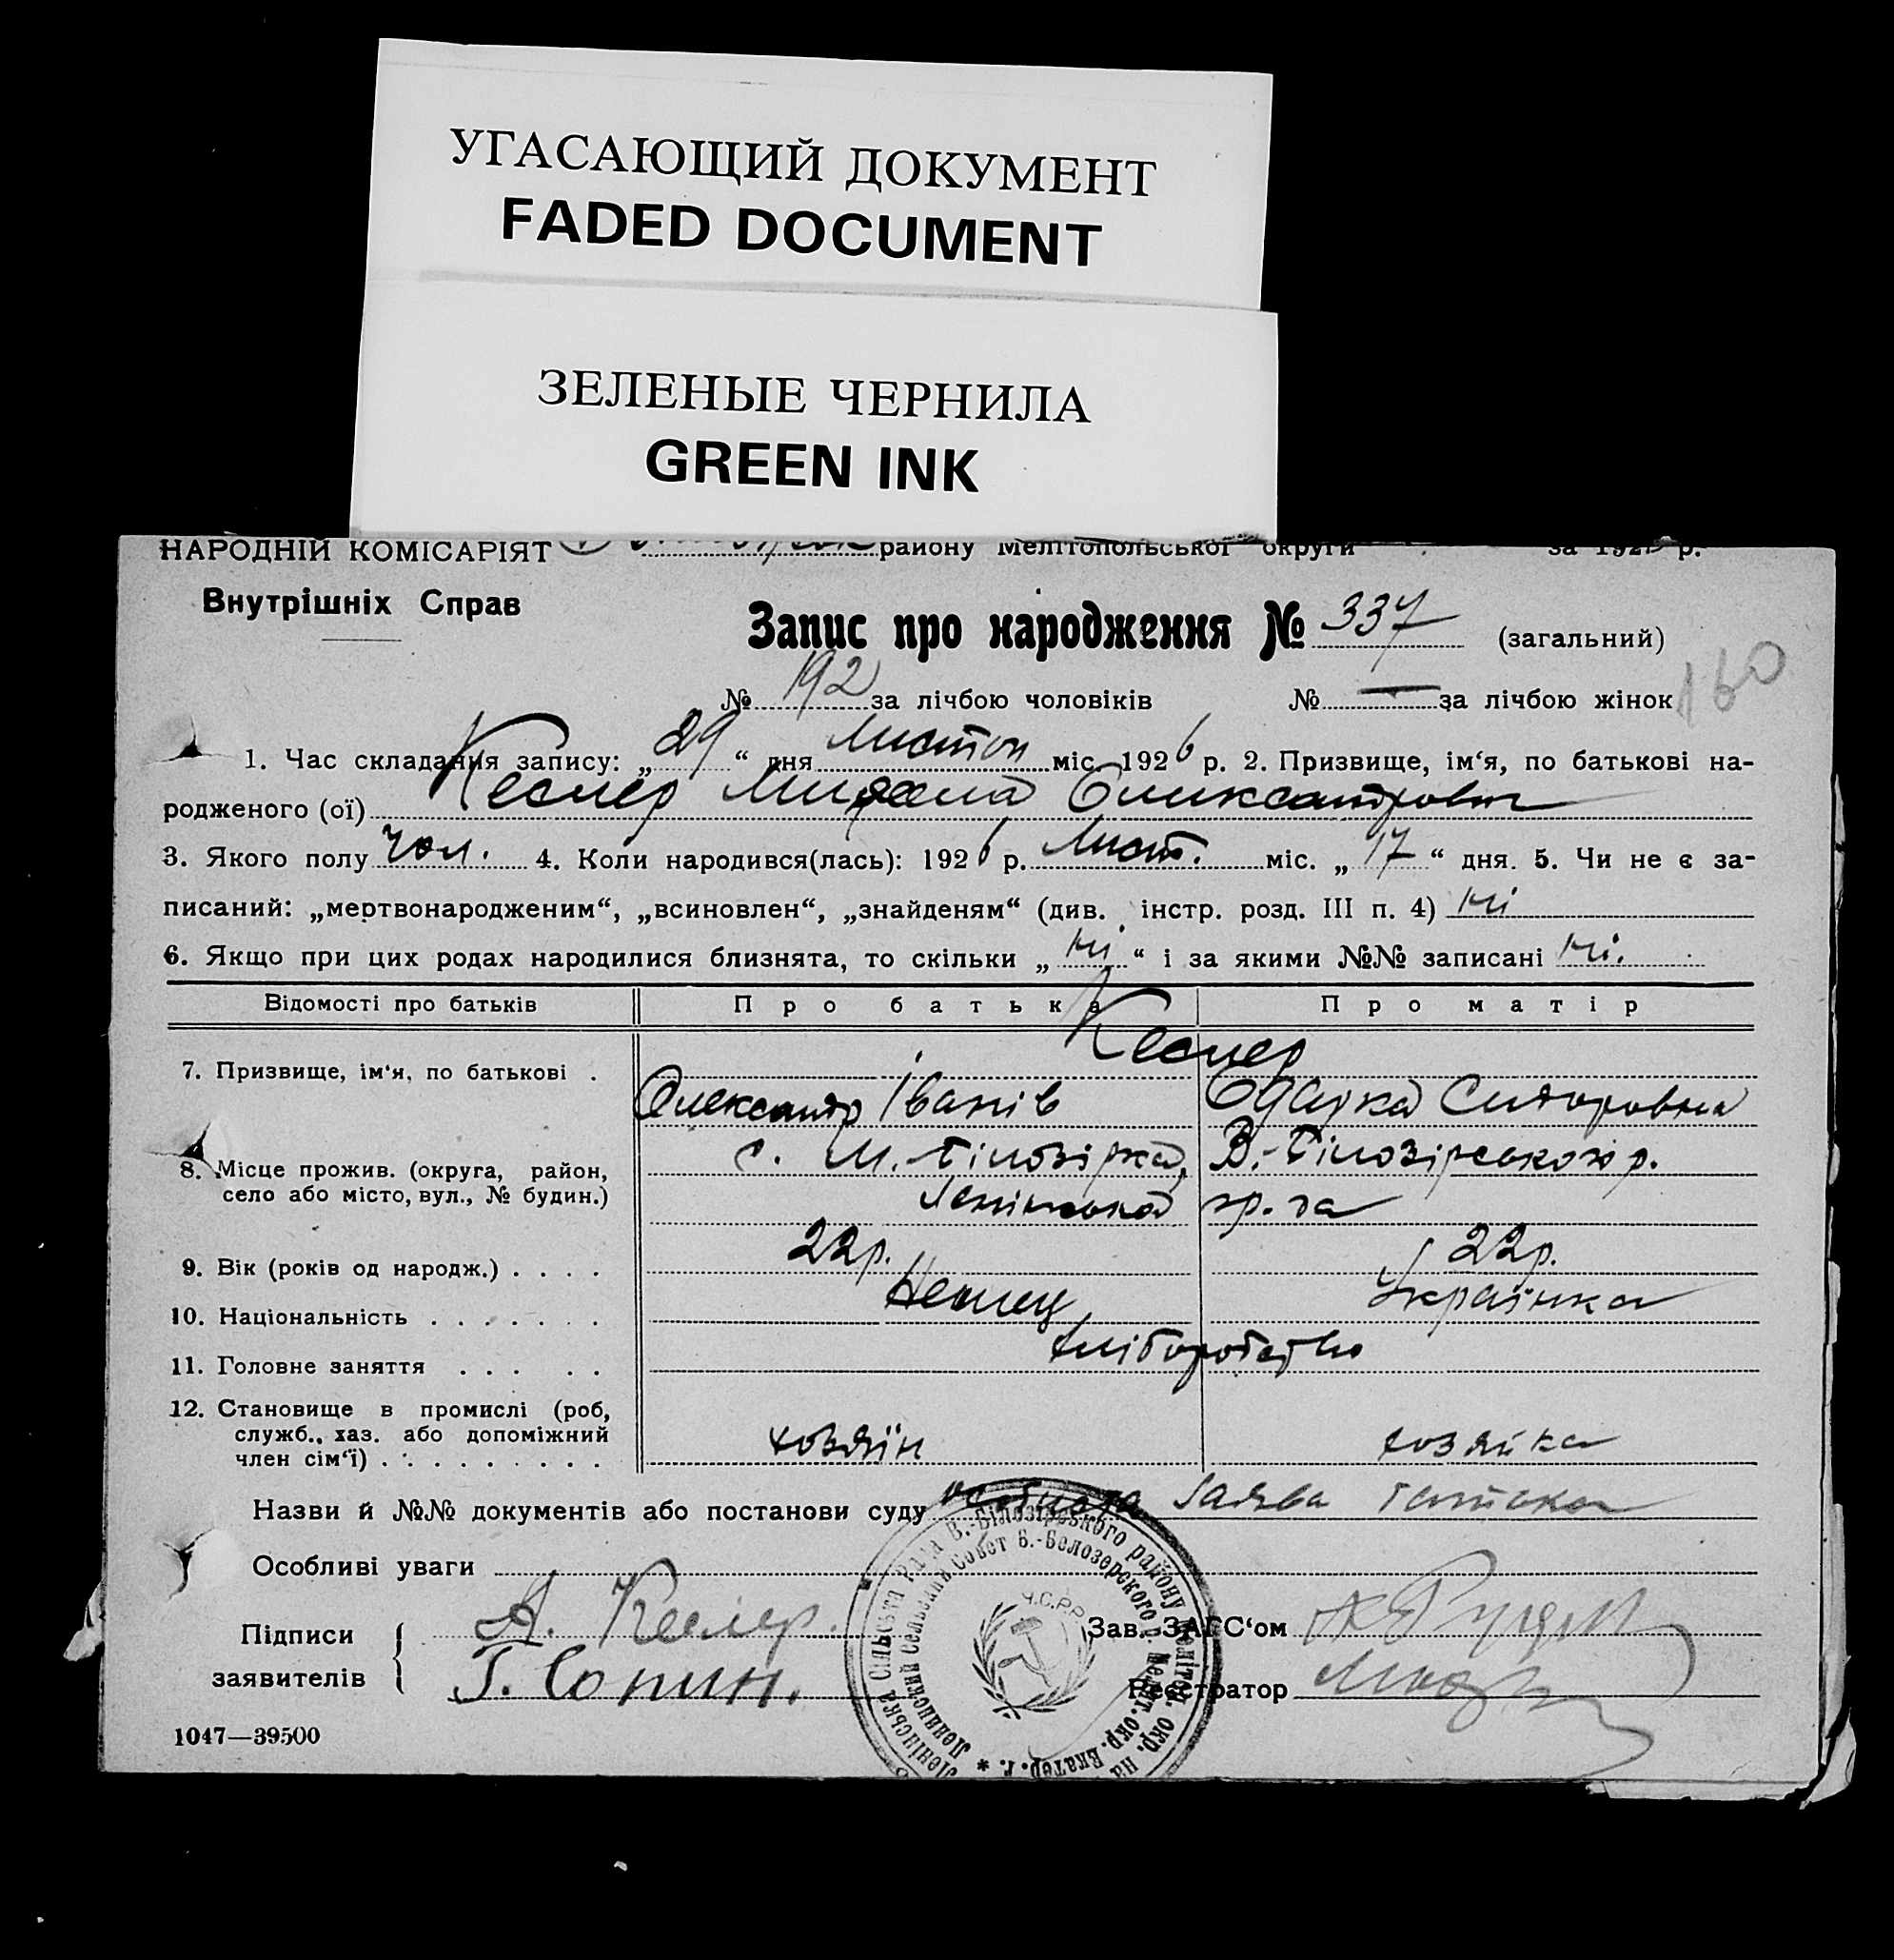 УГАСАЮЩИЙ ДОКУМЕНТ
FADED DOCUMENT
ЗЕЛЕНЫЕ ЧЕРНИЛА
GREEN INK
НАРОДНІЙ КОМІСАРІЯТ району Мелітопольської округи за 192 р.
Внутрішніх Справ
Запис про народження № 337 (загальний)
160
№ 192 за лічбою чоловіків № — за лічбою жінок
1. Час складання запису: „29“ дня листоп міс. 1926 р. 2. Призвище, ім‘я, по батькові на-
родженого (ої) Кеслер Михаила Олександрович
3. Якого полу чол. 4. Коли народився(лась): 1926 р. Лист. міс. „17“ дня. 5. Чи не є за-
писаний: „мертвонародженим“, „всиновлен“, „знайденям“ (див. інстр. розд. III п. 4) ні
6. Якщо при цих родах народилися близнята, то скільки „ні“ і за якими №№ записані ні.
Відомості про батьків Про батька Про матір
Кеслер
7. Призвище, ім‘я, по батькові .
Олександр Іванів Одарка Сидоровна
8. Місце прожив. (округа, район, с. М.-Білозірка, В.-Білозірського р.
село або місто, вул., № будин.) Ленінська
9. Вік (років од народж.) . . . . 22р. 22р.
10. Національність . . . . . . . Немец Українка
11. Головне заняття . . . . . хліборобство
12. Становище в промислі (роб,
служб., хаз. або допоміжний хозяїн хозяйка
член сім‘ї) . . . . . . . . . .
Назви й №№ документів або постанови суду особиста заява батька
Особливі уваги
Підписи заявителів А. Кеслер. Зав. ЗАГС‘ом
Т. Сопин. Реєстратор
Ленінська Сільська Рада В.-Білозірського району Мелітоп. окр. на
Ленинский Сельский Совет В.-Белозерского р. Мелит. окр. Екатер. г. *
У.С.Р.Р.
1047—39500